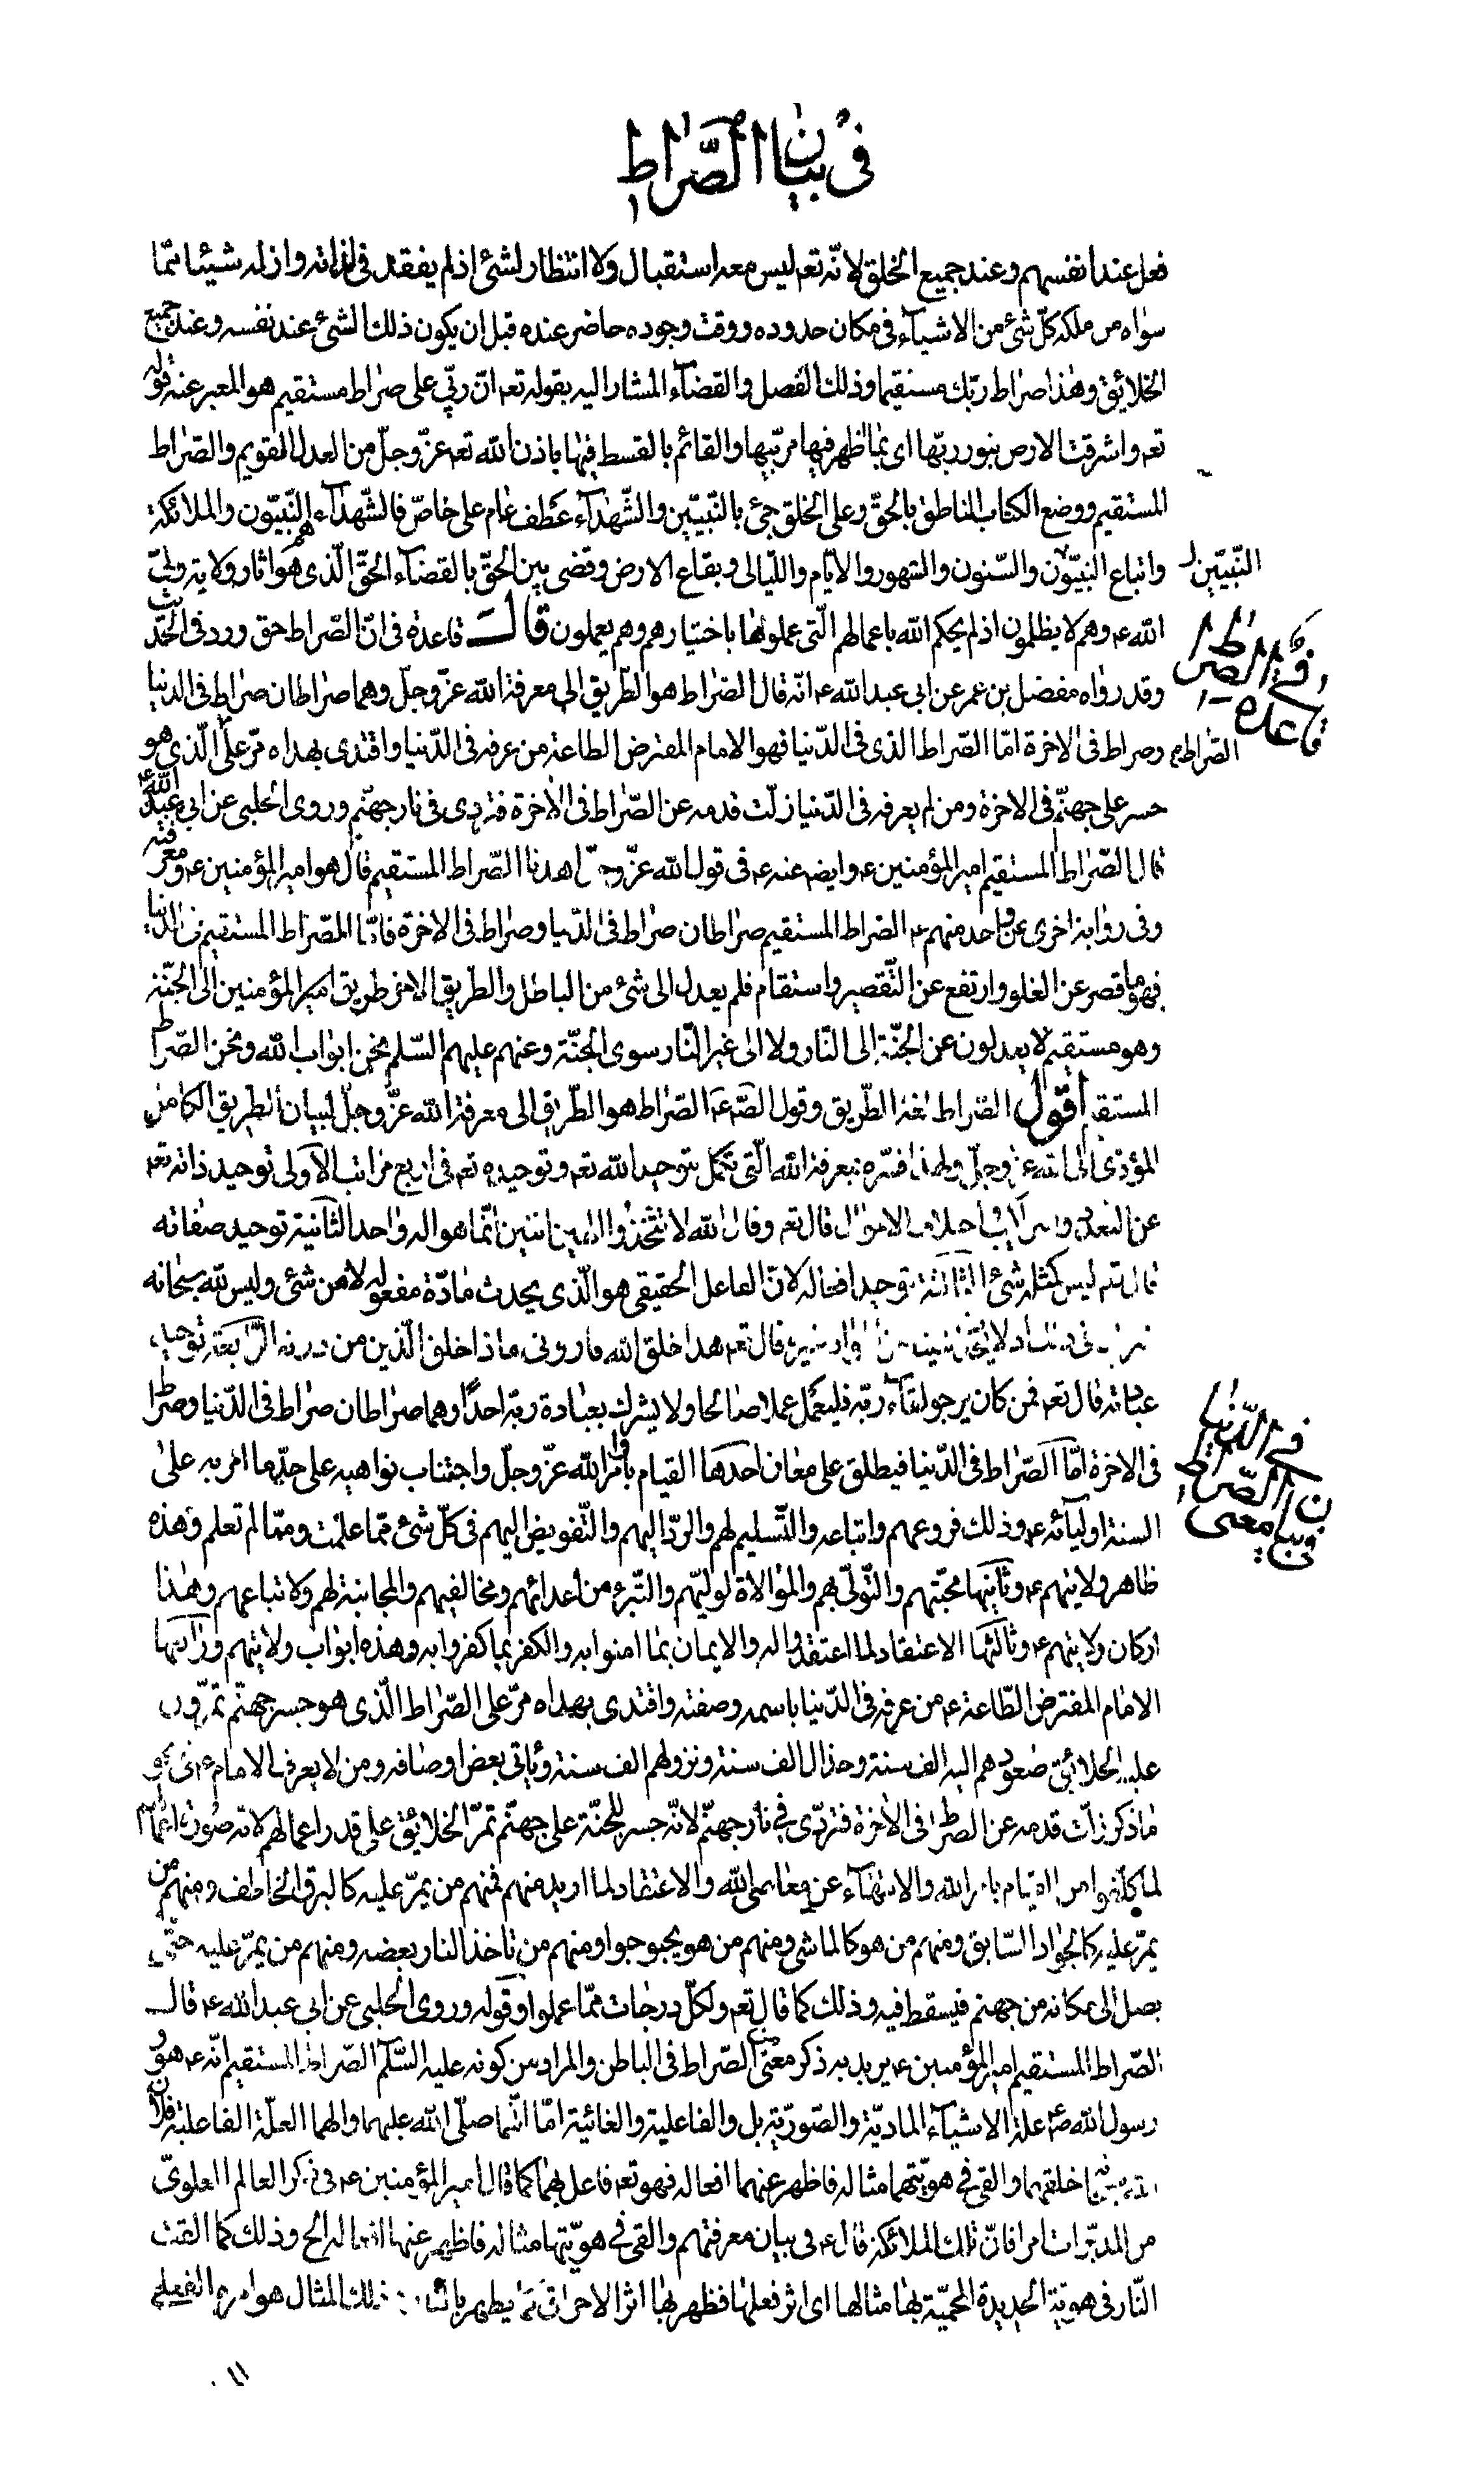 في بيان الصّراط
فعل عند انفسهم وعند جميع الخلق لانّه تعه ليس معه استقبال ولا انتظار لشئ اذ لم يفقد في ازليته وازله شيئا ممّا
سواه من ملكه كلّ شئ من الاشيآء في مكان حدوده ووقت وجوده حاضر عنده قبل ان يكون ذلك الشئ عند نفسه وعند جميع
الخلائق وهذا صراط ربّك مستقيما وذلك الفصل والقضآء المشار اليه بقوله تعه انّ ربّي على صراط مستقيم هو المعبر عنه قوله
تعه واشرقت الارض بنور ربّها اى بما ظهر فيها مربّيها والقائم بالقسط فيها باذن الله تعه عزّ وجلّ من العدل القويم والصّراط
المستقيم ووضع الكتاب الناطق بالحقّ وعلى الخلق جئ بالنّبيّين والشّهدآء عطف عام على خاصّ فالشّهدآء هم النّبيّون والملائكة
النّبيّين
واتباع النبيّون والسّنون والشهور والايّام واللّيالى وبقاع الارض وقضى بين الحقّ بالقضآء الحقّ الّذى هو اثار ولاية ولىّ
الله ع وهم لا يظلمون اذ لم يحكم الله باعمالهم الّتى عملوها باختيارهم وهم يعملون قال قاعدة في انّ الصّراط حق ورد فى الحديث
قاعدة في الصراط
وقد رواه مفضل بن عمر عن ابى عبد الله ع انّه قال الصّراط هو الطّريق الى معرفة الله عزّ وجلّ وهما صراطان صراط فى الدنيا
وصراط فى الاخرة امّا الصّراط الذى فى الدّنيا فهو الامام المفترض الطاعة من عرفه فى الدّنيا واقتدى بهداه مرّ على الّذى هو
الصّراط
جسر على جهنّم فى الاخرة ومن لم يعرفه فى الدّنيا زلّت قدمه عن الصّراط فى الاخرة فتردى في نار جهنّم وروى الحلبى عن ابى عبد الله ع
قال الصّراط المستقيم امير المؤمنين ع وايضه عنه ع فى قول الله عزّ وجلّ اهدنا الصّراط المستقيم قال هو امير المؤمنين ع ومعرفته
وفى رواية اخرى عن واحد منهم ع الصّراط المستقيم صراطان صراط فى الدّنيا وصراط فى الاخرة فامّا الصّراط المستقيم فى الدنيا
فهو ما قصر عن الغلو وارتفع عن التّقصير واستقام فلم يعدل الى شئ من الباطل والطريق الاخر طريق المؤمنين الى الجنّة
وهو مستقيم لا يعدلون عن الجنّة الى النّار ولا الى غير النّار سوى الجنّة وعنهم عليهم السّلم نحن ابواب الله ونحن الصّراط
المستقيم اقول الصّراط لغة الطّريق وقول الصّه ع الصّراط هو الطّريق الى معرفة الله عزّ وجلّ لبيان الطريق الكامل
المؤدّى الى الله عزّ وجلّ ولهذا فسّره بمعرفة الله الّتى تكمل بتوحيد الله تعه وتوحيده تعه فى اربع مراتب الاولى توحيد ذاته تعه
عن التعدّد قال تعه وقال الله لا تتّخذوا الهين اثنين انّما هو اله واحد الثّانية توحيد صفاته
قال تعه ليس كمثله شئ الثّالثة توحيد افعاله لانّ الفاعل الحقيقى هو الّذى يحدث مادّة مفعوله لا من شئ وليس لله سبحانه
قال تعه هذا خلق الله فارونى ماذا خلق الّذين من دونه الرّابعة توحيد
عبادته قال تعه فمن كان يرجو لقآء ربّه فليعمل عملا صالحا ولا يشرك بعبادة ربّه احدًا وهما صراطان صراط فى الدّنيا وصراط
فى الاخرة امّا الصّراط فى الدّنيا فيطلق على معان احدها القيام باوامر الله عزّ وجلّ واجتناب نواهيه على حدّ ما امر به على
في بيان معنى الصّراط في الدّنيا
السنة اوليآئه ع وذلك فروعهم واتباعه والتّسليم لهم والردّ اليهم والتّفويض اليهم فى كلّ شئ ممّا علمت وممّا لم تعلم وهذه
ظاهر ولايتهم ع وثانيها محبّتهم والتّولّى بهم والموالاة لوليّهم والتّبرء من اعدائهم ومخالفيهم والمجانبة لهم ولاتباعهم وهذا
اركان ولايتهم ع وثالثها الاعتقاد لما اعتقدوا له والايمان بما امنوا به والكفر بما كفروا به وهذه ابواب ولايتهم ورابعها
الامام المفترض الطّاعة ع من عرفه فى الدّنيا باسمه وصفته واقتدى بهداه مرّ على الصّراط الّذى هو جسر جهنّم تمرّون
عليه الخلائق صعودهم اليه الف سنة وحذال الف سنة ونزولهم الف سنة ويأتى بعض اوصافه ومن لا يعرف الامام ع
ما ذكر زلّت قدمه عن الصّراط فى الاخرة فتردّى في نار جهنّم لانّه جسر للجنّة على جهنّم تمرّ الخلائق على قدر اعمالهم لانّه صورة اعمالهم
لما كلّفوا من القيام بامر الله والانتهآء عن معاصى الله والاعتقاد لما اريد منهم فمنهم من يمرّ عليه كالبرق الخاطف ومنهم من
يمرّ عليه كالجواد السّابق ومنهم من هو كالماشى ومنهم من هو يحبو حبوا ومنهم من تاخذ النار بعضه ومنهم من يمرّ عليه حتّى
يصل الى مكانه من جهنم فيسقط فيه وذلك كما قال تعه ولكلّ درجات ممّا عملوا وقوله وروى الحلبى عن ابى عبد الله ع قال
الصّراط المستقيم امير المؤمنين ع يريد به ذكر معنى الصّراط فى الباطن والمراد من كونه عليه السّلم الصّراط المستقيم انّه ع هو و
رسول الله صه علة الاشيآء الماديّة والصّوريّة بل والفاعلية والغائية امّا انّهما صلّى الله عليهما والهما العلّة الفاعلية فلانّ
خلقهما والقى في هويّتهما مثاله فاظهر عنهما افعاله فهو تعه فاعل بهما كما قال امير المؤمنين ع فى ذكر العالم العلوىّ
من المدبّرات امرا فانّ تلك الملائكة قال ع فى بيان معرفتهم والقى في هويّتها مثاله فاظهر عنها افعاله الخ وذلك كما القت
النّار فى هويّة الحديدة المحميّة بها مثالها اى اثر فعلها فظهر بها اثر الاحراق ذلك المثال هو امره الفعلى